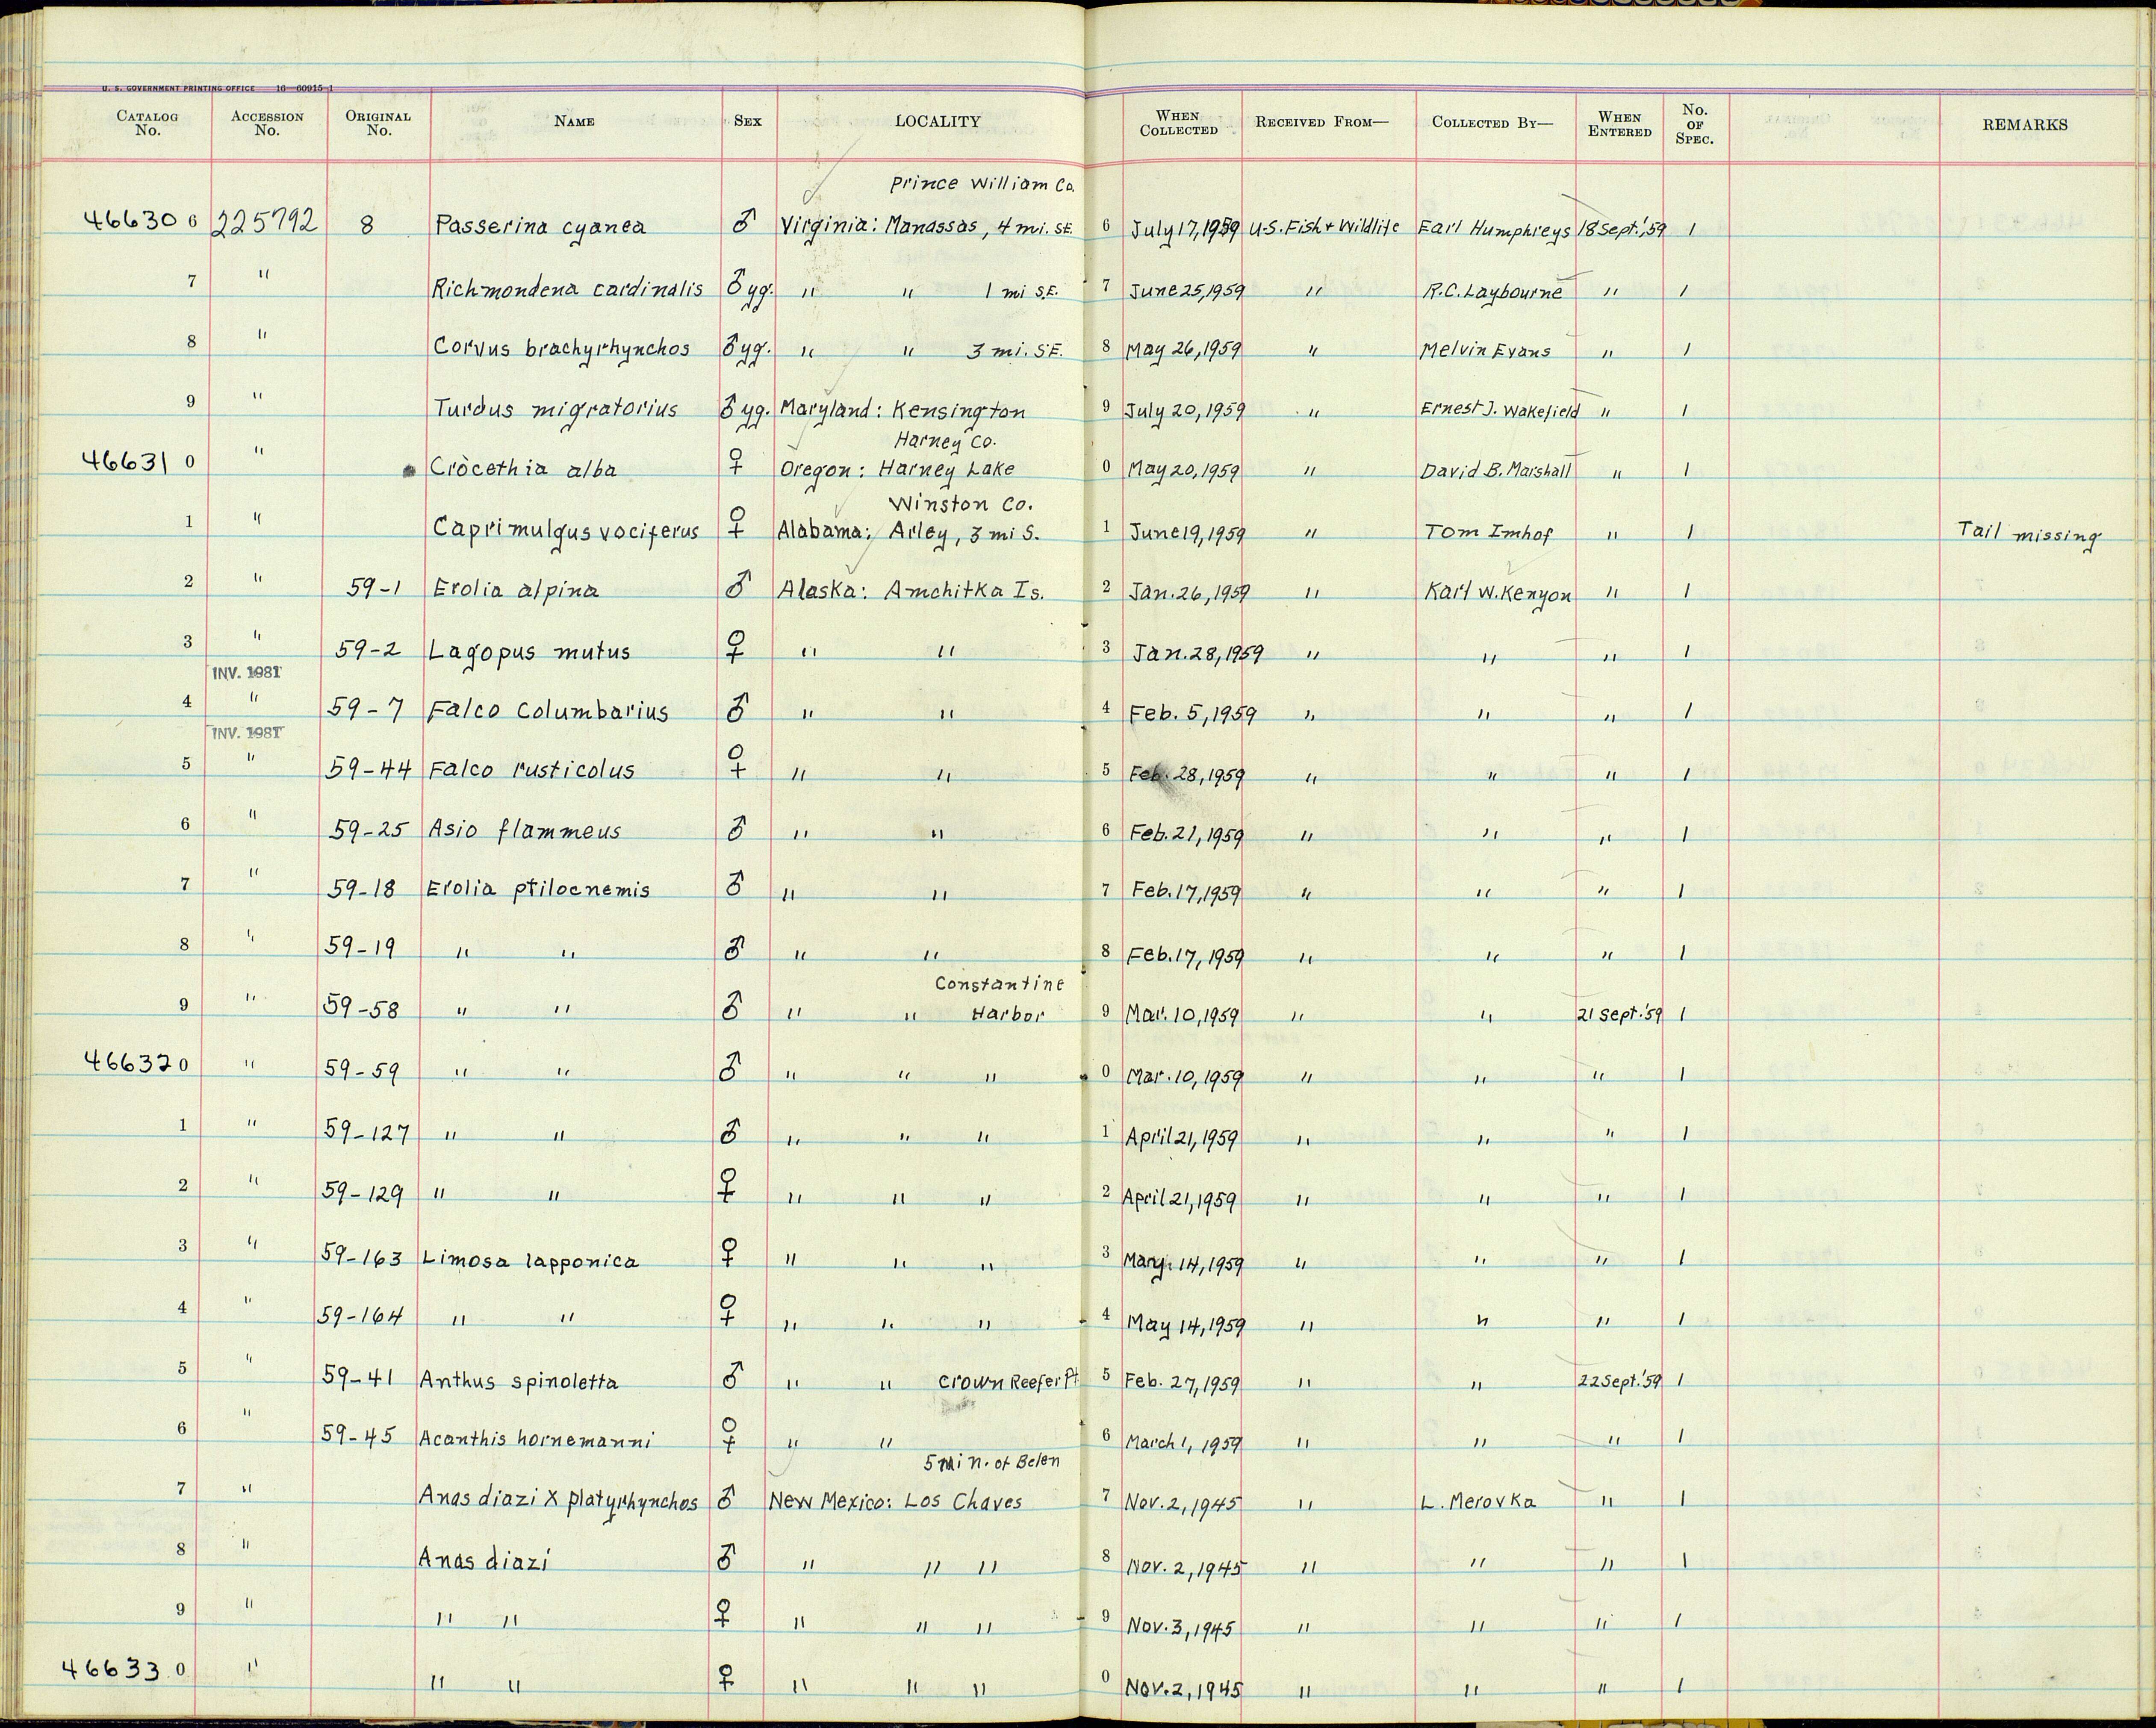 U. S. GOVERNMENT PRINTING OFFICE 16—60915-1
CATALOG No. ACCESSION No. ORIGINAL No. NAME SEX LOCALITY WHEN COLLECTED RECEIVED FROM— COLLECTED BY— WHEN ENTERED No. OF SPEC. REMARKS
Prince William Co.
46630 6 225792 8 Passerina cyanea ♂ Virginia: Manassas, 4 mi. SE. 6 July 17, 1959 U.S. Fish + Wildlife Earl Humphreys 18 Sept. '59 1
7 " Richmondena cardinalis ♂ yg. " " 1 mi S.E. 7 June 25, 1959 " R.C. Laybourne " 1
8 " Corvus brachyrhynchos ♂ yg. " " 3 mi. SE. 8 May 26, 1959 " Melvin Evans " 1
9 " Turdus migratorius ♂ yg. Maryland: Kensington 9 July 20, 1959 " Ernest J. Wakefield " 1
Harney Co.
46631 0 " Crocethia alba ♀ Oregon: Harney Lake 0 May 20, 1959 " David B. Marshall " 1
Winston Co.
1 " Caprimulgus vociferus ♀ Alabama: Arley, 3 mi S. 1 June 19, 1959 " Tom Imhof " 1 Tail missing
2 " 59-1 Erolia alpina ♂ Alaska: Amchitka Is. 2 Jan. 26, 1959 " Karl W. Kenyon " 1
3 " 59-2 Lagopus mutus ♀ " " 3 Jan. 28, 1959 " " " 1
INV. 1981
4 " 59-7 Falco columbarius ♂ " " 4 Feb. 5, 1959 " " " 1
INV. 1981
5 " 59-44 Falco rusticolus ♀ " " 5 Feb. 28, 1959 " " " 1
6 " 59-25 Asio flammeus ♂ " " 6 Feb. 21, 1959 " " " 1
7 " 59-18 Erolia ptilocnemis ♂ " " 7 Feb. 17, 1959 " " " 1
8 " 59-19 " " ♂ " " 8 Feb. 17, 1959 " " " 1
Constantine
9 " 59-58 " " ♂ " " Harbor 9 Mar. 10, 1959 " " 21 Sept. '59 1
46632 0 " 59-59 " " ♂ " " " 0 Mar. 10, 1959 " " " 1
1 " 59-127 " " ♂ " " " 1 April 21, 1959 " " " 1
2 " 59-129 " " ♀ " " " 2 April 21, 1959 " " " 1
3 " 59-163 Limosa lapponica ♀ " " " 3 May 14, 1959 " " " 1
4 " 59-164 " " ♀ " " " 4 May 14, 1959 " " " 1
5 " 59-41 Anthus spinoletta ♂ " " Crown Reefer Pt 5 Feb. 27, 1959 " " 22 Sept. '59 1
6 " 59-45 Acanthis hornemanni ♀ " " 6 March 1, 1959 " " " 1
5 mi n. of Belen
7 " Anas diazi X platyrhynchos ♂ New Mexico: Los Chaves 7 Nov. 2, 1945 " L. Merovka " 1
8 " Anas diazi ♂ " " " 8 Nov. 2, 1945 " " " 1
9 " " " ♀ " " " 9 Nov. 3, 1945 " " " 1
46633 0 " " " ♀ " " " 0 Nov. 2, 1945 " " " 1